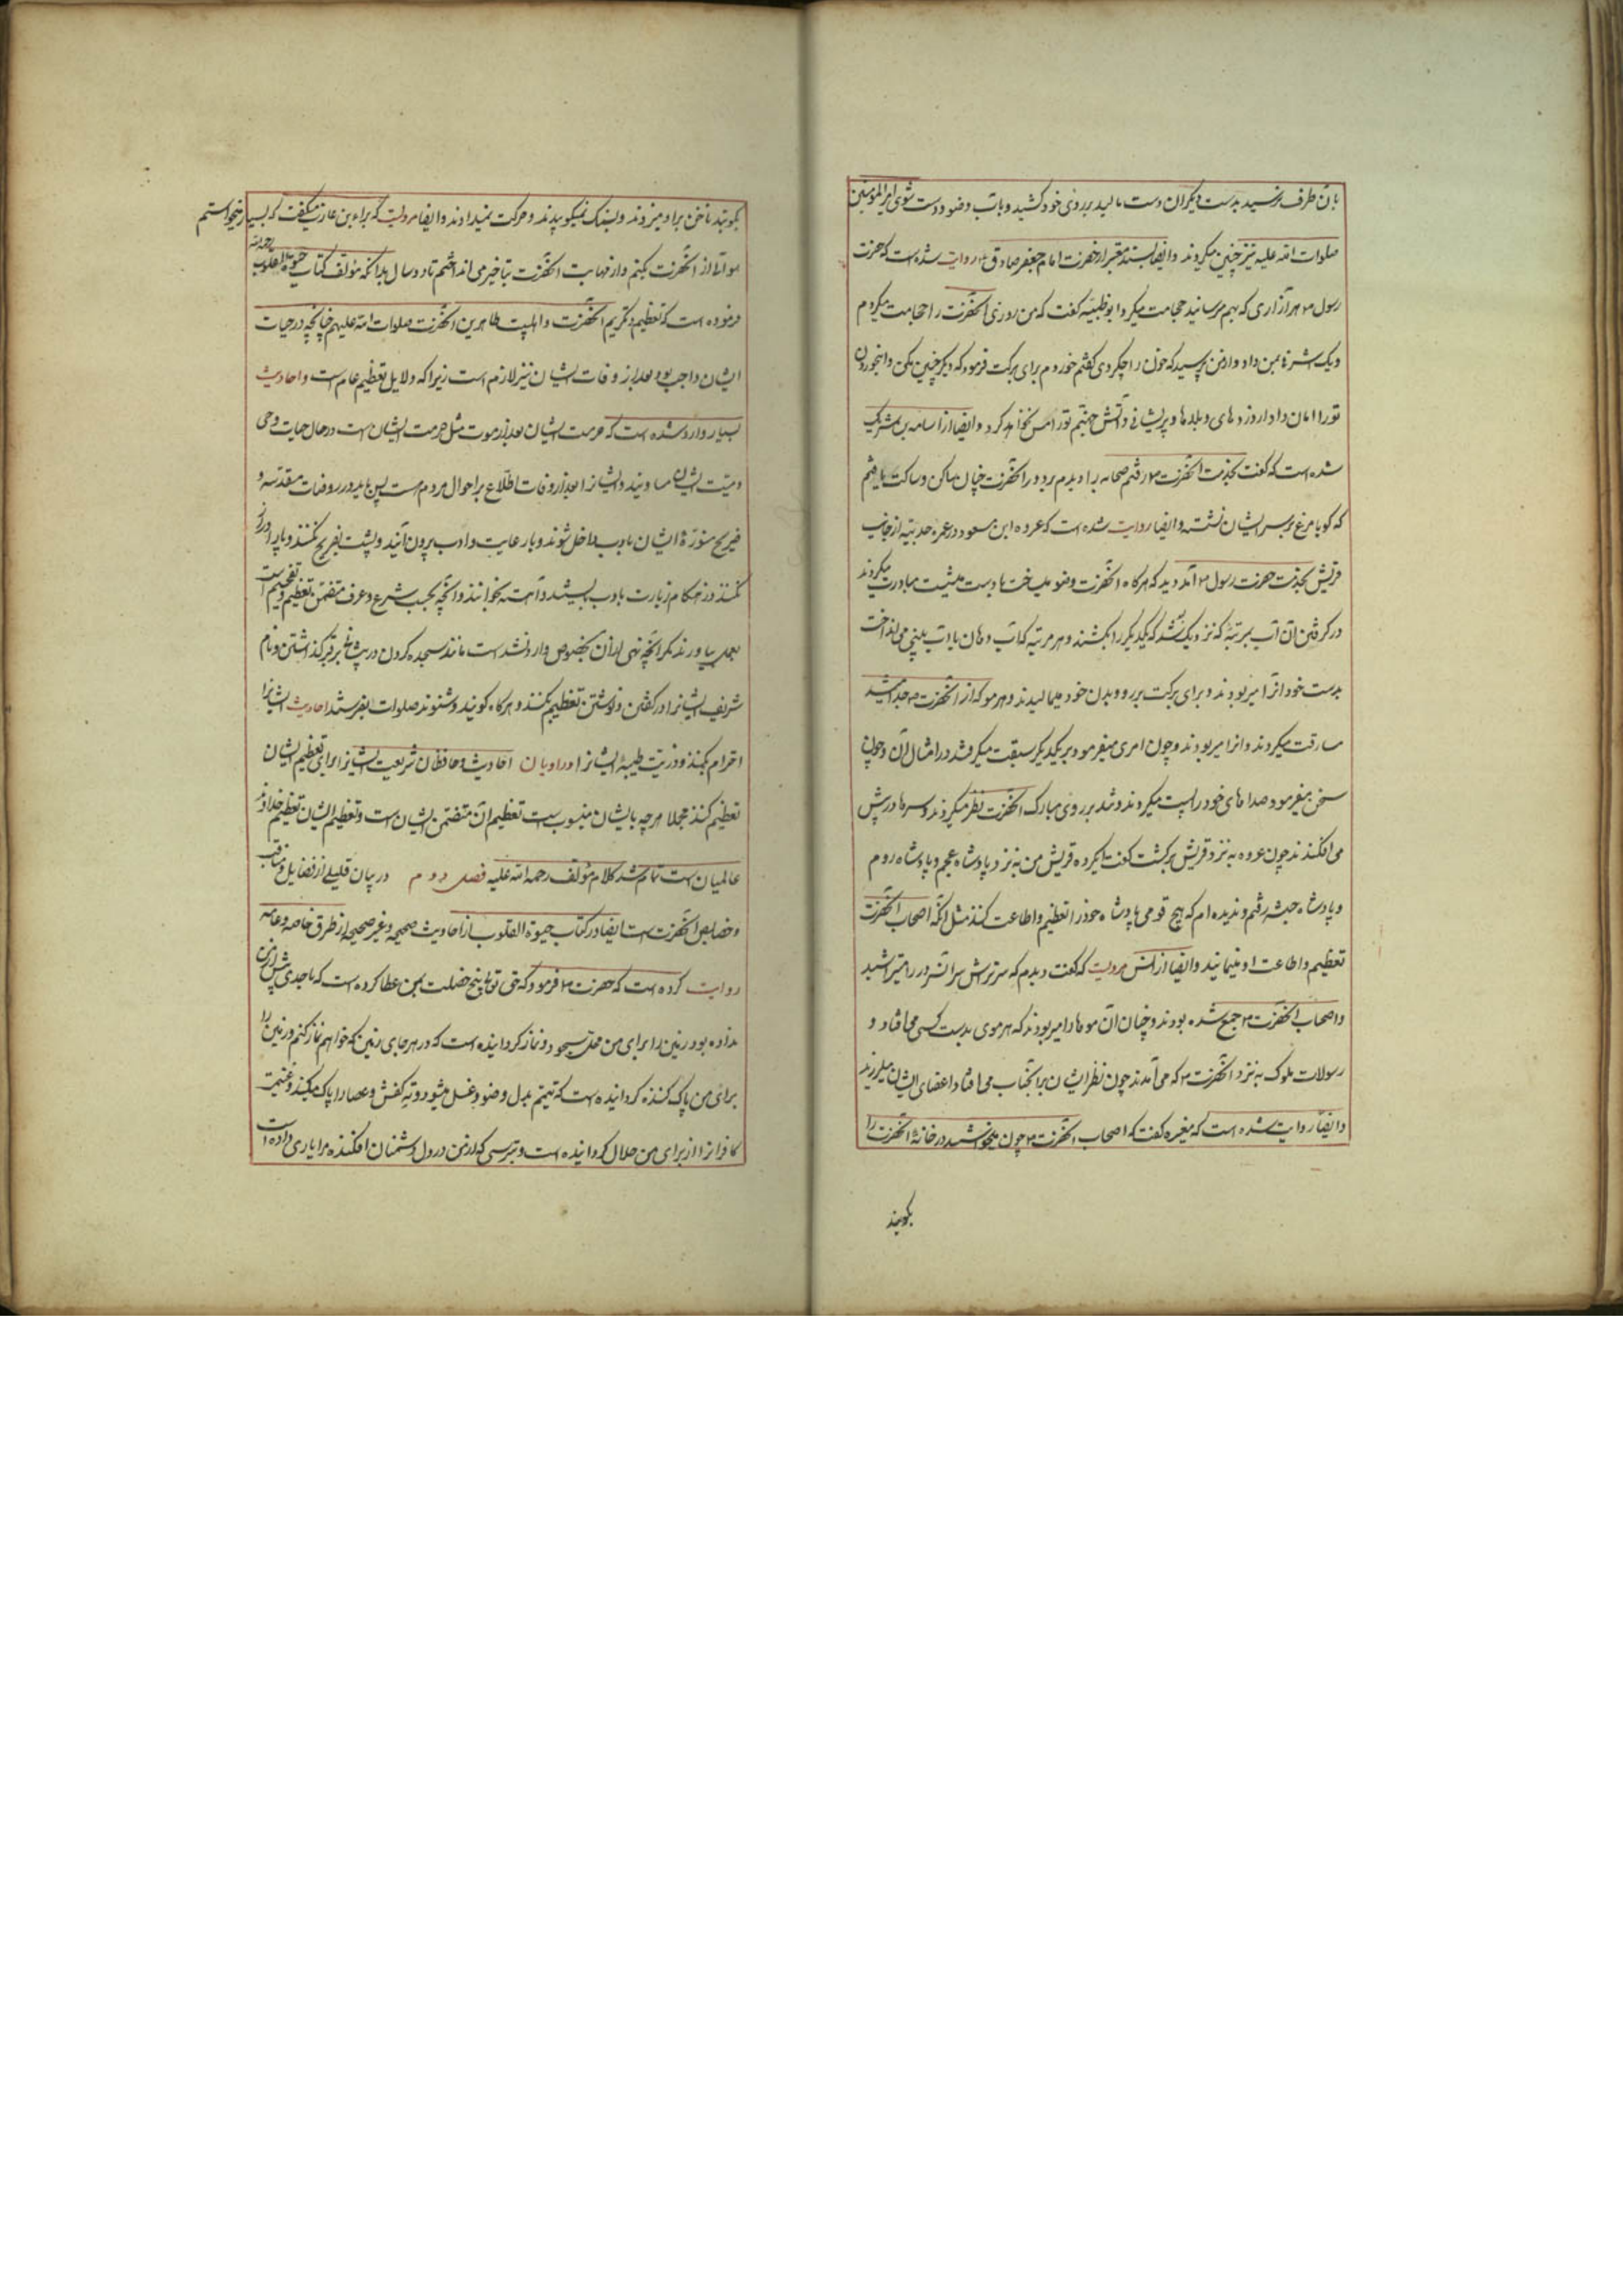 بآن طرف نرسید بدست دیگران دست مالید بر روی خود کشید و بآب وضو و دست شوی امیرالمومنین
صلوات الله علیه نیز چنین میکردند وایضا بسند معتبر از حضرت امام جعفر صادق ع روایت شده است که حضرت
رسول ص هر آزاری که بهم میرسانید حجامت میکرد ابوظبیه گفت که من روزی آنحضرت را حجامت میکردم
ویک اشرفی بمن داد و از من پرسید که خون را چکردی گفتم خوردم برای برکت فرمود که دیگر چنین مکن و اینخوردن
تورا امان داد از دردهای وبلاها وپریشانی و آتش جهنم تورا مس نخواهد کرد وایضا از اسامه بن شریک
شده است که گفت بخدمت آنحضرت ص رفتم صحابه را دیدم بر دور آنحضرت چنان ساکن وساکت یافتم
که گویا مرغ بر سر ایشان نشسته وایضا روایت شده است که عروه ابن مسعود در عمره حدیبیه از جانب
قریش بخدمت حضرت رسول ص آمد دید که هرگاه آنحضرت وضو میساخت یا دست میشست مبادرت میکردند
در گرفتن آن آب بمرتبهٔ که نزدیک شد که یکدیگر را بکشند و هر مرتبه که آب دهان یا آب بینی می انداخت
بدست خود آنرا میربودند و برای برکت بر رو وبدن خود میمالیدند و هر مو که از آنحضرت ص جدا میشد
مسارقت میکردند وآنرا میربودند و چون امری میفرمود بر یکدیگر سبقت میگرفتند در امتثال آن و چون
سخن میفرمود صداهای خود را پست میکردند و تند بر روی مبارک آنحضرت نظر نمیکردند و سرها در پیش
می افکندند چون عروه به نزد قریش برگشت گفت ایگروه قریش من به نزد پادشاه عجم و پادشاه روم
و پادشاه حبشه رفتم وندیده ام که هیچ قومی پادشاه خود را تعظیم و اطاعت کنند مثل آنکه اصحاب آنحضرت
تعظیم واطاعت او مینمایند وایضا از انس مرویست که گفت دیدم که سرتراش سر آنسرور را میتراشید
واصحاب آنحضرت ص جمع شده بودند و چنان آن موها را میربودند که هر موی بدست کسی می افتاد و
رسولان ملوک به نزد آنحضرت ص که می آمدند چون نظر ایشان بر آنجناب می افتاد اعضای ایشان میلرزید
وایضا روایت شده است که مغیره گفت که اصحاب آنحضرت ص چون میخواستند در خانهٔ آنحضرت را
بکوبند
بکوبند ناخن بر او میزدند و بسنگ نمیکوبیدند وحرکت نمیدادند وایضا مرویست که براء بن عازب میگفت که بسیار میخواستم
سوالی از آنحضرت بکنم واز مهابت آنحضرت بتأخیر می انداختم تا دو سال بدانکه مؤلف کتاب حیوة القلوب رحمه الله
فرموده است که تعظیم وتکریم آنحضرت واهلبیت طاهرین آنحضرت صلوات الله علیهم چنانچه در حیات
ایشان واجب بود بعد از وفات ایشان نیز لازم است زیرا که دلایل تعظیم عام است واحادیث
بسیار وارد شده است که حرمت ایشان بعد از موت مثل حرمت ایشان است در حال حیات وحی
ومیت ایشان مساویند و ایشانرا بعد از وفات اطلاع بر احوال مردم هست پس باید در روضات مقدسه و
ضریح منورهٔ ایشان باادب داخل شوند وبا رعایت وادب بیرون آیند وپشت بضریح نکنند وپا دراز
نکنند ودر هنگام زیارت باادب بایستند وآهسته بخوانند وآنچه بحسب شرع وعرف متضمن تعظیم وتفخیم است
بعمل بیاورند مگر آنچه نهی از آن بخصوص وارد شده است مانند سجده کردن وپیشانی بر قبر گذاشتن ونام
شریف ایشانرا در گفتن ونوشتن تعظیم بکنند و هرگاه گویند وشنوند صلوات بفرستند احادیث ایشانرا
احترام بکنند وذریت طیبهٔ ایشانرا وراویان احادیث وحافظان شریعت ایشانرا برای تعظیم ایشان
تعظیم کنند مجملا هرچه بایشان منسوب است تعظیم آن متضمن ایشان است وتعظیم ایشان تعظیم خداوند
عالمیان است تمام شد کلام مؤلف رحمه الله علیه فصل دوم در بیان قلیلی از فضایل ومناقب
وخصایص آنحضرت است ایضا در کتاب حیوة القلوب از احادیث صحیحه وغیر صحیحه از طرق خاصه وعامه
روایت کرده است که حضرت ص فرمود که حق تعالی پنج خصلت بمن عطا کرده است که باحدی پیش از من
نداده بود زمین را برای من محل سجود ونماز گردانیده است که در هر جای زمین که خواهم نماز کنم وزمین را
برای من پاک کننده گردانیده است که تیمم بدل وضو وغسل میشود وته کفش وعصا را پاک میکند وغنیمت
کافرانرا از برای من حلال گردانیده است وترسی که از من در دل دشمنان افکنده مرا یاری داده است